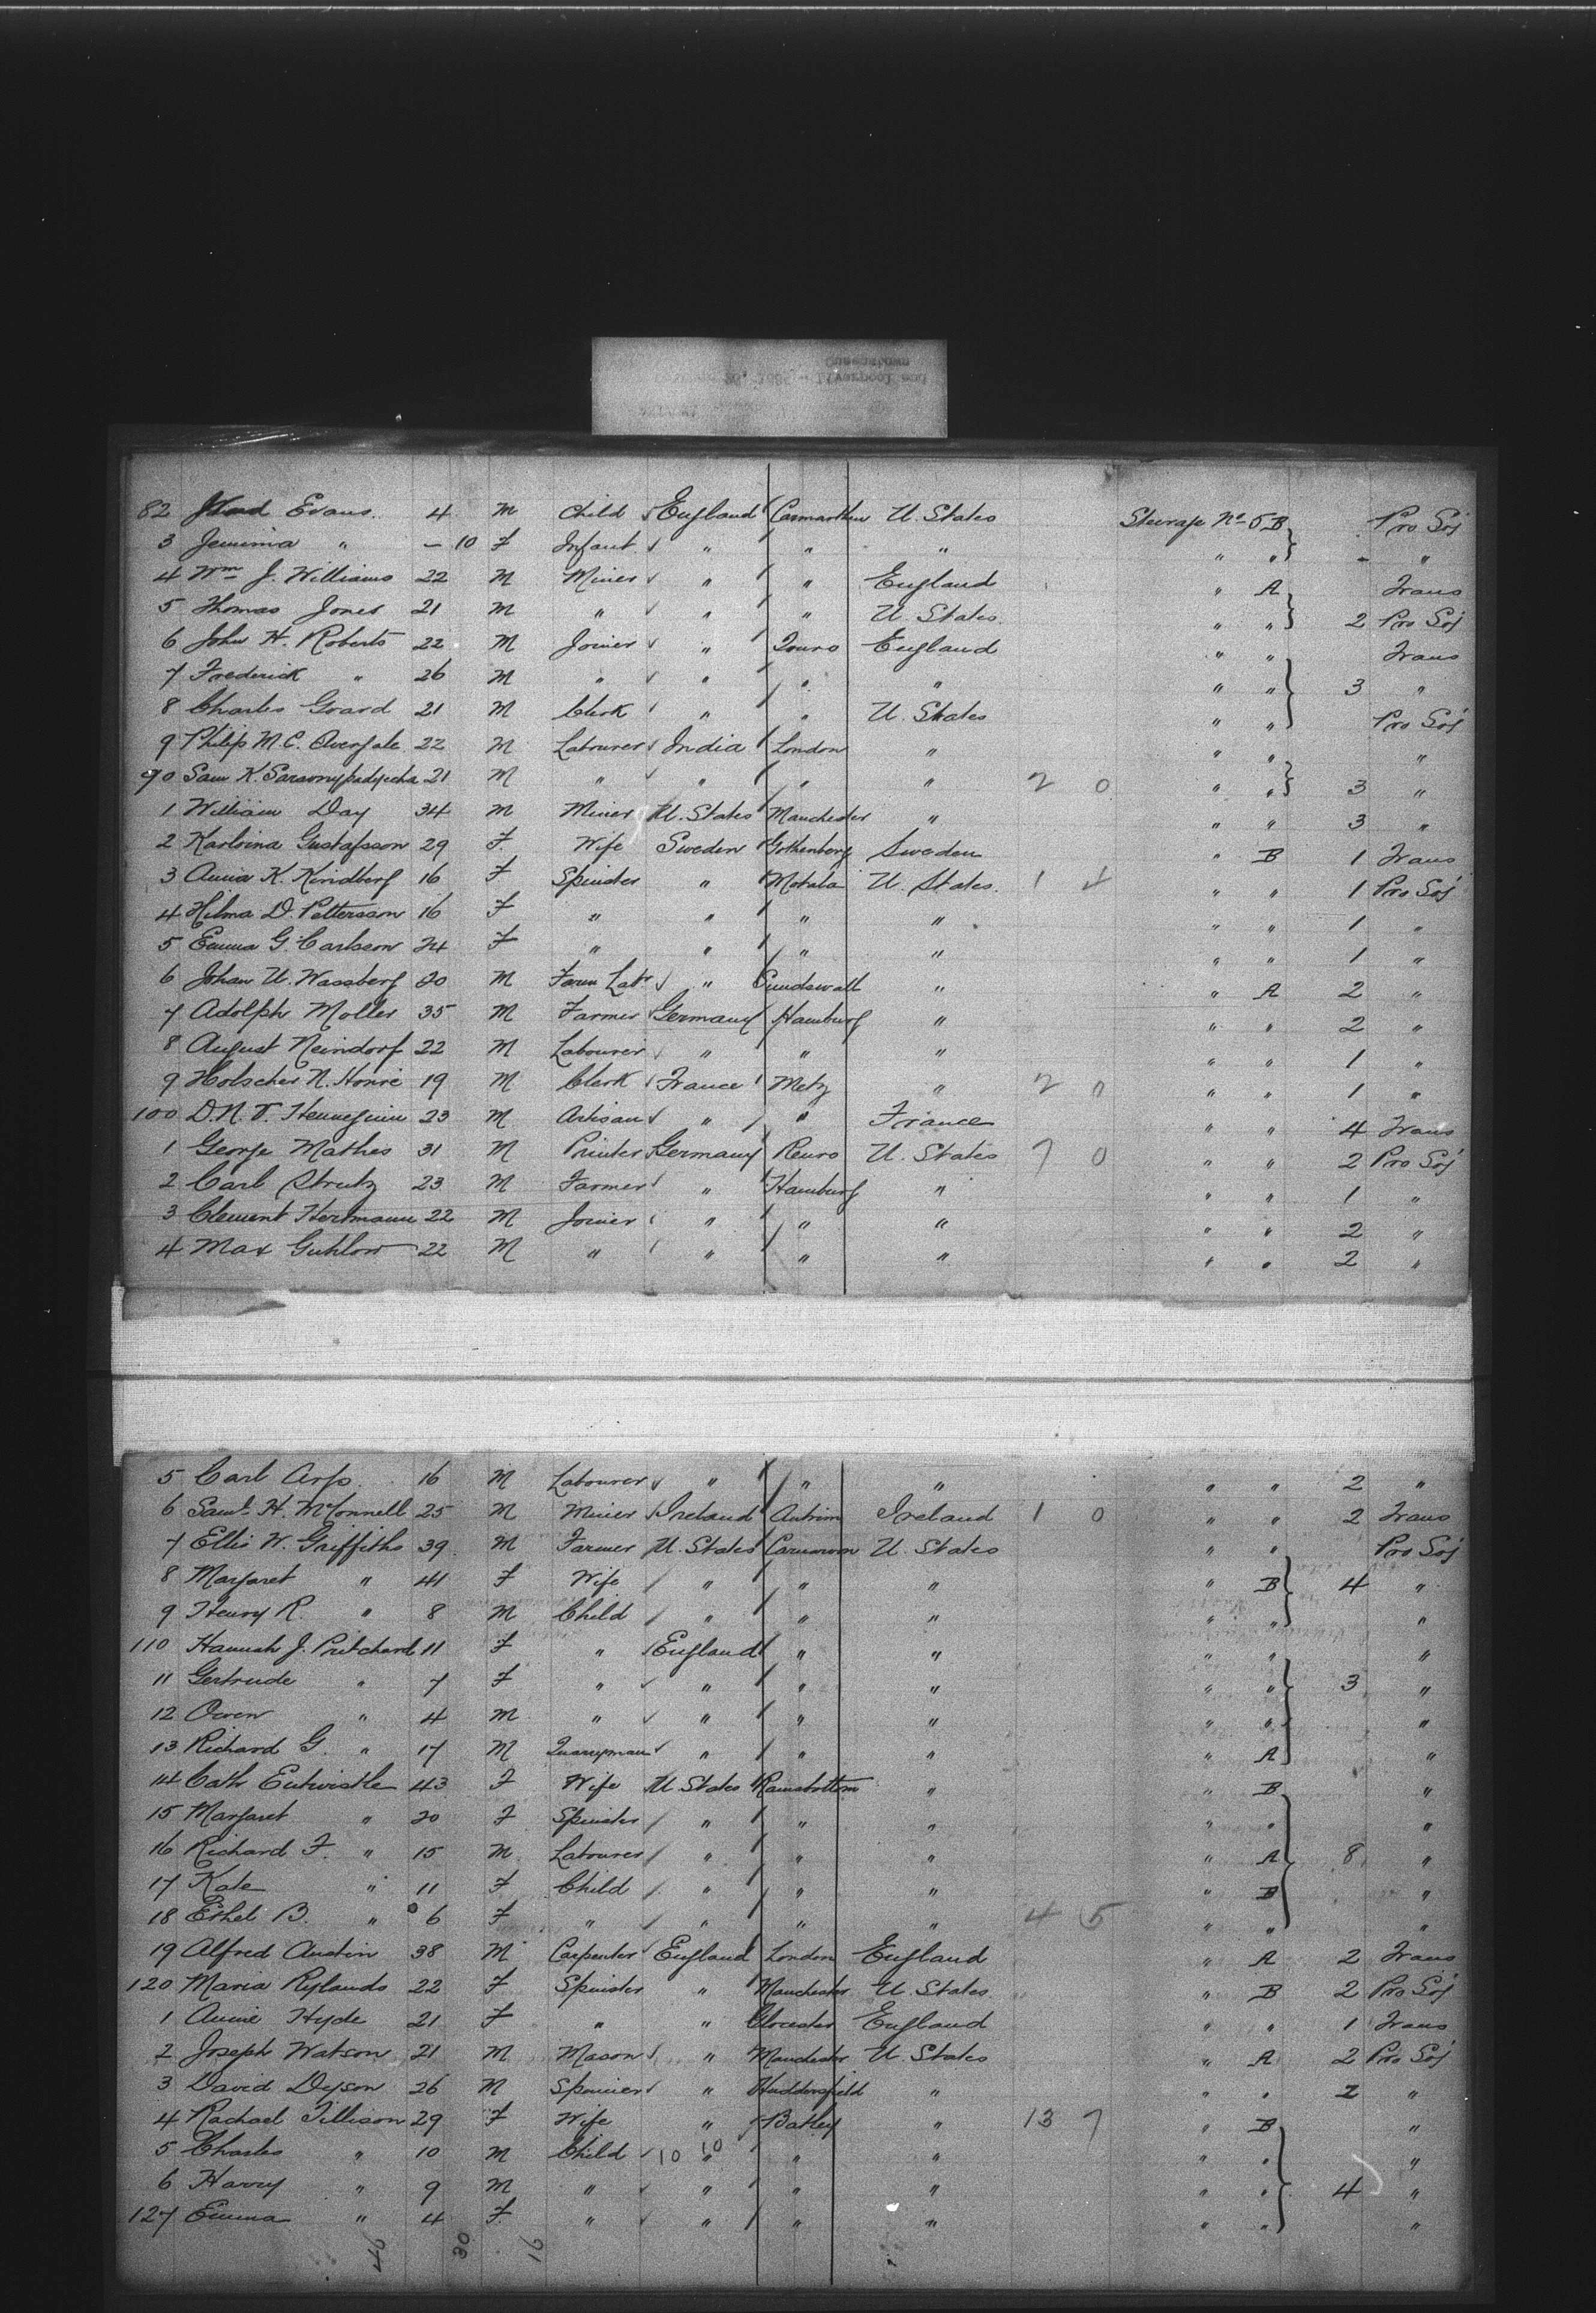 Liverpool and
Queenstown
82 Evans. 4 M Child England Carmarthen U. States Steerage No 5 B Pro Soj
3 Jemima " - 10 F Infant " " " " " - "
4 Wm J. Williams 22 M Miner " " England " A Trans
5 Thomas Jones 21 M " " " U. States. " " 2 Pro Soj
6 John H. Roberts 22 M Joiner " Truro England " " Trans
7 Frederick " 26 M " " " " " " 3 "
8 Charles Goard 21 M Clerk " " U. States " " Pro Soj
9 Philip M.C. 22 M Labourer India London " " " "
90 Sam K. 21 M " " " " 2 0 " " 3 "
1 William Day 34 M Miner U. States Manchester " " " 3 "
2 Karloina Gustafsson 29 F. Wife Sweden Gothenberg Sweden " B 1 Trans
3 Anna K. Kindberg 16 F Spinster " Motala U. States. 1 4 " " 1 Pro Soj
4 Hilma D. Petterson 16 F " " " " " " 1 "
5 Emma G. Carlson 24 F " " " " " " 1 "
6 Johan U. Wassberg 20 M Farm Labr " Sundswall " " A 2 "
7 Adolph Moller 35 M Farmer Germany Hamburg " " " 2 "
8 August Neindorf 22 M Labourer " " " " " 1 "
9 Holscher N. Honré 19 M Clerk France Metz " 2 0 " " 1 "
100 D.N.T. Hennequin 23 M Artisan " " France " " 4 Trans
1 George Mathes 31 M Printer Germany U. States 7 0 " " 2 Pro Soj
2 Carl Strutz 23 M Farmer " Hamburg " " " 1 "
3 Clement Hertmann 22 M Joiner " " " " " 2 "
4 Max Guhlow 22 M " " " " " " 2 "
5 Carl Arp 16 M Labourer " " " " " 2 "
6 Saml. H. McConnell 25 M Miner Ireland Antrim Ireland 1 0 " " 2 Trans
7 Ellis W. Griffiths 39 M Farmer U. States Carnarvon U. States " " Pro Soj
8 Margaret " 41 F Wife " " " " B 4 "
9 Henry R. " 8 M Child " " " " " "
110 Hannah J. Pritchard 11 F " England " " " " "
11 Gertrude " 7 F " " " " " " 3 "
12 Owen " 4 M " " " " " " "
13 Richard G. " 17 M Quarryman " " " " A "
14 Cath Entwistle 43 F Wife U. States Ramsbottom " " B "
15 Margaret " 20 F Spinster " " " " " "
16 Richard F. " 15 M. Labourer " " " " A 8 "
17 Kate " 11 F Child " " " " B "
18 Ethel B. " 6 F " " " " 4 5 " " "
19 Alfred Austin 38 M Carpenter England London England " A 2 Trans
120 Maria Rylands 22 F Spinster " Manchester U. States. " B 2 Pro Soj
1 Annie Hyde 21 F " " Glocester England " " 1 Trans
2 Joseph Watson 21 M Mason " Manchester U. States " A 2 Pro Soj
3 David Dyson 26 M Spinner " Huddersfield " " " 2 "
4 Rachael Tillison 29 F Wife " Batley " 13 7 " B "
5 Charles " 10 M Child 10 10 " " " " " "
6 Harry " 9 M " " " " " " 4 "
127 Emma " 4 F. " " " " " " "
46 30 16